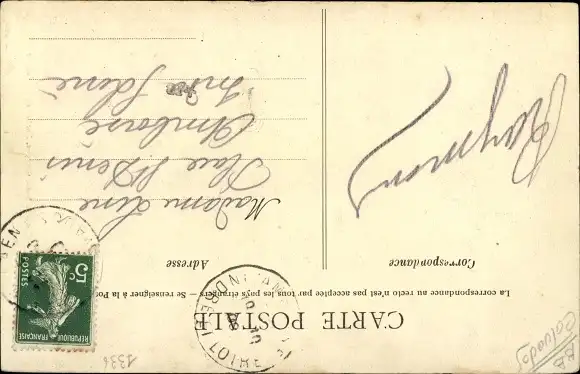 CARTE POSTALE
La correspondance au recto n'est pas acceptée par tous les pays étrangers — Se renseigner à la Po
Correspondance
Adresse
Raymond
Madame Line
Place St Denis
Amboise
Indre
5c
POSTES
REPUBLIQUE FRANÇAISE
INDRE
1336
Calvados